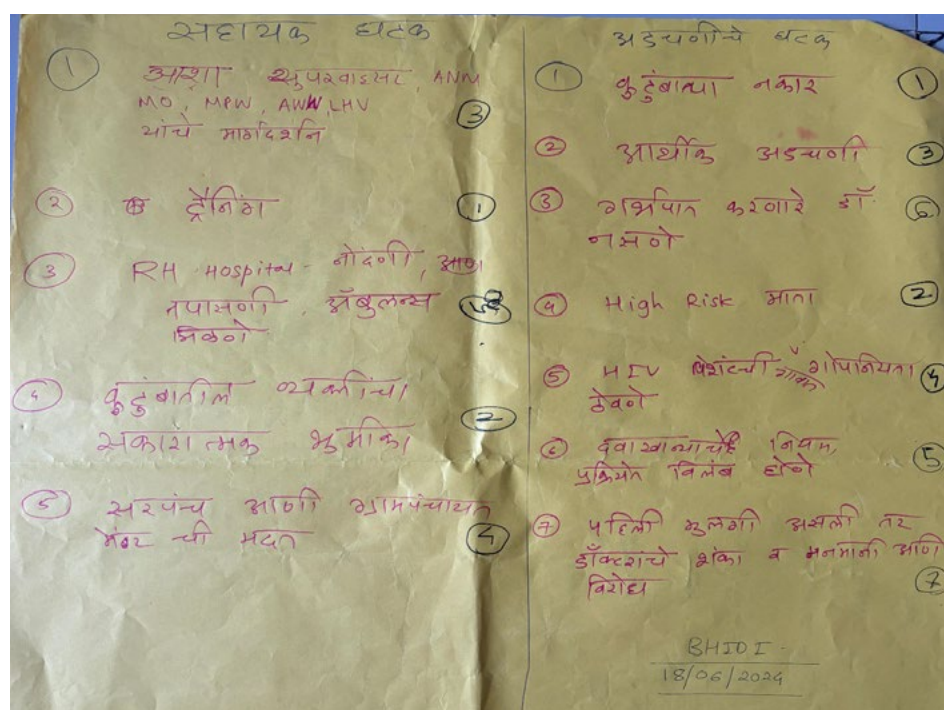 सहाय्यक घटक
① आशा सुपरवाइसर, ANM
MO, MPW, AWW, LHV ③
यांचे मार्गदर्शन
② ट्रैनिंग ①
③ RH Hospital - नोंदणी,
तपासणी, ॲंबुलन्स
मिळणे
४ कुटुंबातील व्यक्तींचा
सकारात्मक भुमिका ②
⑤ सरपंच आणी ग्रामपंचायत
मेंबर ची मदत ④
अडचणीचे घटक
① कुटुंबाचा नकार ①
② आर्थीक अडचणी ③
③ गर्भपात करणारे डॉ. ⑥
नसणे
④ High Risk माता ②
⑤ HIV पेशंटची गोपनियता ४
ठेवणे
⑥ दवाखान्याचे नियम, ⑤
प्रक्रियेत विलंब होणे
⑦ पहिली मुलगी असली तर
डॉक्टरांचे शंका व मनमानी आणि
विरोध ⑦
BHIDI
18/06/2024